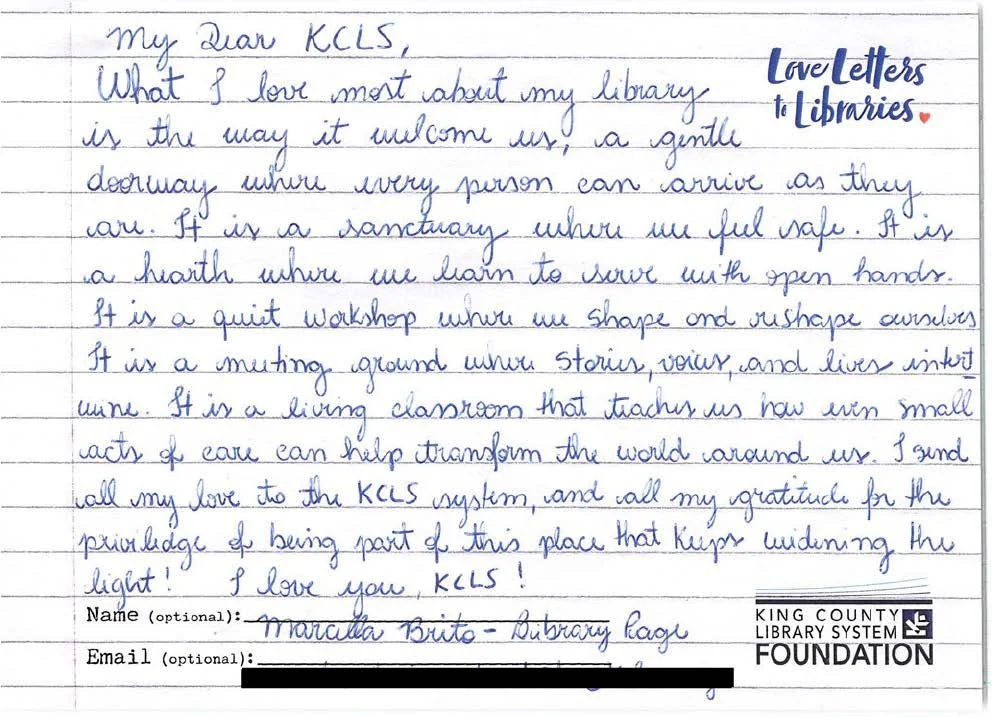 My Dear KCLS,
Love Letters
to Libraries.
What I love most about my library
is the way it welcome us, a gentle
doorway where every person can arrive as they
are. It is a sanctuary where we feel safe. It is
a hearth where we learn to serve with open hands.
It is a quiet workshop where we shape and reshape ourselves
It is a meeting ground where stories, voices, and lives intert
wine. It is a living classroom that teaches us how even small
acts of care can help transform the world around us. I send
all my love to the KCLS system, and all my gratitude for the
priviledge of being part of this place that keeps widening the
light! I love you, KCLS!
Name (optional): Marcella Brito - Library Page
Email (optional):
KING COUNTY
LIBRARY SYSTEM
FOUNDATION